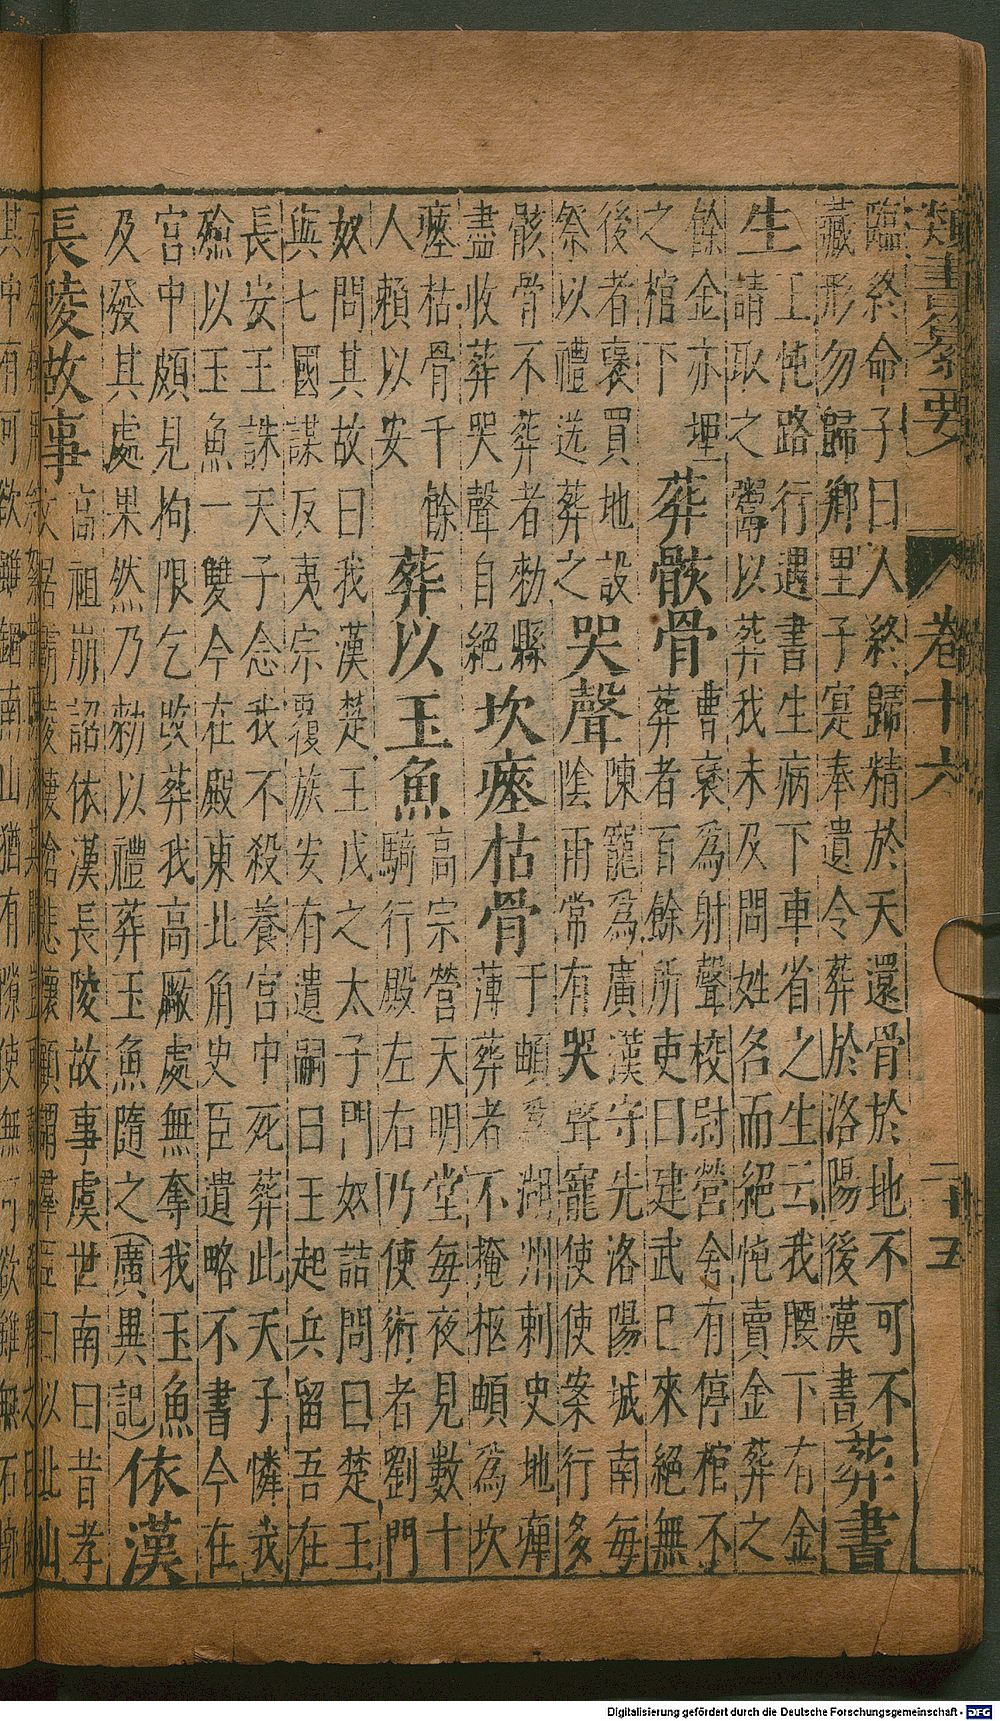 類書纂要 卷十六 二十五
臨終命子曰人終歸精於天還骨於地不可不
藏形勿歸鄉里子寔奉遺令葬於洛陽後漢書
葬書
生
王忳路行遇書生病下車省之生云我腰下有金
請取之鬻以葬我未及問姓名而絕忳賣金葬之
餘金亦埋
之棺下
葬骸骨
曹襃爲射聲校尉營舍有停棺不
葬者百餘所吏曰建武巳來絕無
後者襃買地設
祭以禮送葬之
哭聲
陳寵爲廣漢守先洛陽城南每
陰雨常有哭聲寵使使案行多
骸骨不葬者勑縣
盡收葬哭聲自絕
坎瘞枯骨
于頔爲湖州刺史地痺
薄葬者不掩柩頔爲坎
瘞枯骨千餘
人賴以安
葬以玉魚
高宗營天明堂每夜見數十
騎行殿左右乃使術者劉門
奴問其故曰我漢楚王戊之太子門奴詰問曰楚王
與七國謀反夷宗覆族安有遺嗣曰王起兵留吾在
長安王誅天子念我不殺養宮中死葬此天子憐我
殮以玉魚一雙今在殿東北角史臣遺略不書今在
宮中頗見拘限乞改葬我高厰處無奪我玉魚
及發其處果然乃勑以禮葬玉魚隨之(廣異記)
依漢
長陵故事
高祖崩詔依漢長陵故事虞世南曰昔孝
文居霸陵悽愴悲懷顧謂羣臣曰以北山
其中有可欲雖錮南山猶有隙使無可欲雖無石槨
Digitalisierung gefördert durch die Deutsche Forschungsgemeinschaft - DFG